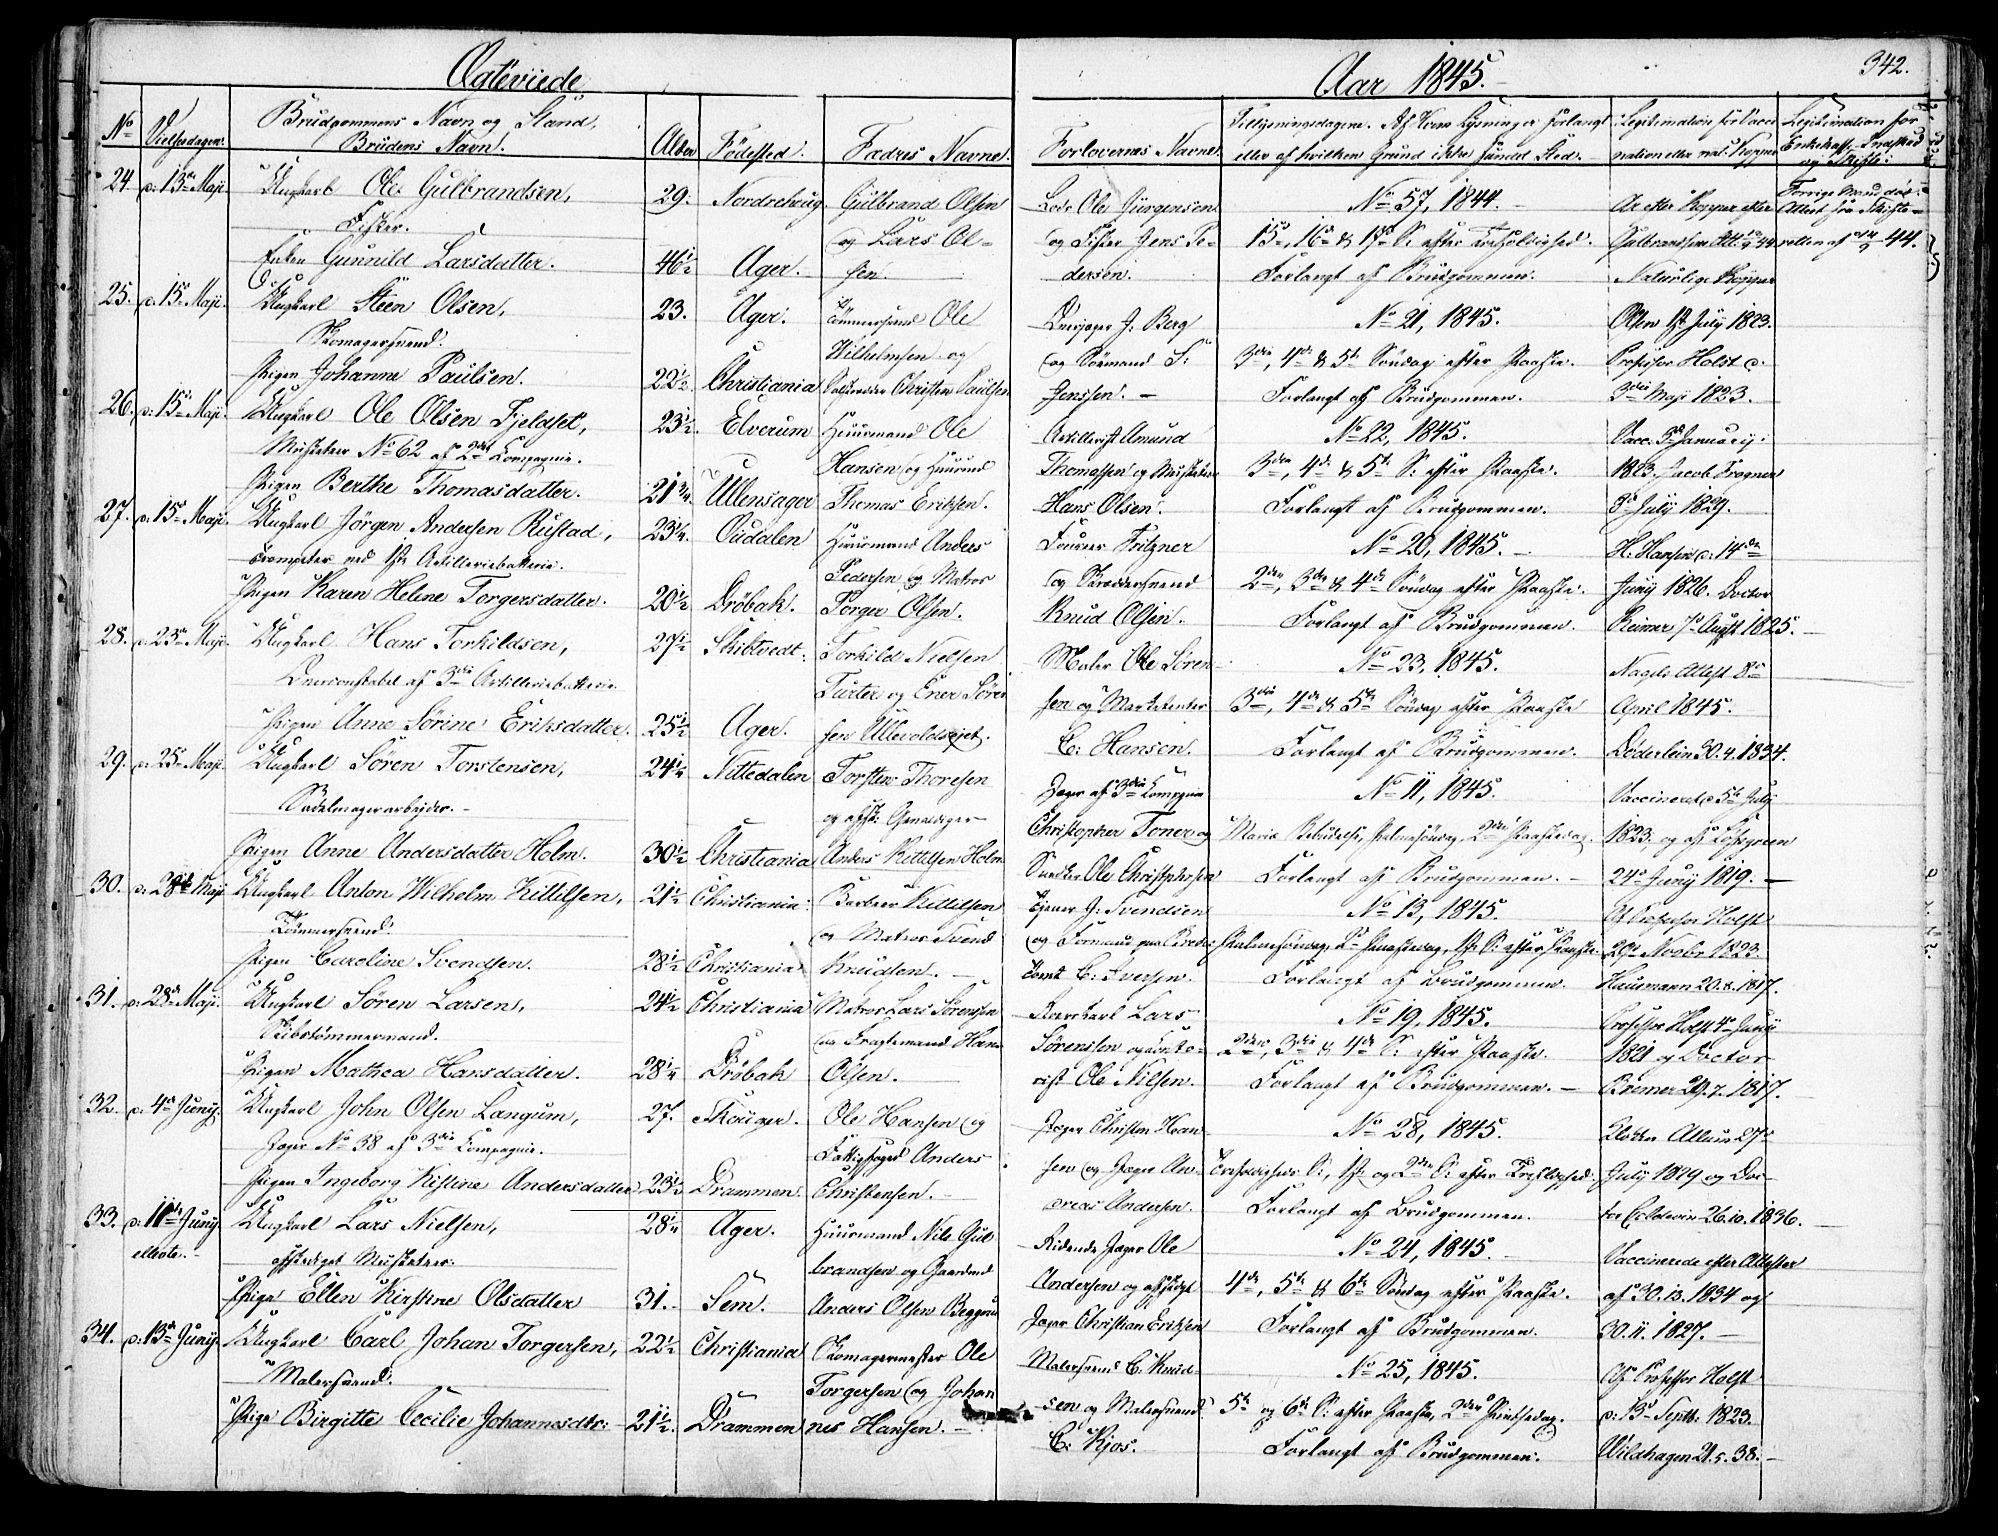 Ægteviede
Aar 1845.
342.
No
Vielsesdagen.
Brudgommens Navn og Stand,
Brudens Navn.
Alder
Fødested.
Fædres Navne.
Forlovernes Navne.
Tillysningsdagene. Af hvem Lysning er forlangt
eller af hvilken Grund ikke fundet Sted.
Legitimation for Vacci-
nation eller nat: Kopper
Legitimation for
og Skifte:
24. d: 13de Maji. Ungkarl Ole Gulbrandsen, 29. Nordrehoug. Gulbrand Olsen Lods Ole Jürgensen No 57, 1844.
Fisker. og Lars Ol- og Fisker Jens Pe- 15de, 16de & 17de S: efter Trefoldighed.
Enken Gunnild Larsdatter. 46½ Ager. sen. dersen. Forlangt af Brudgommen. Naturlige Kopper
25. d. 15de Maji. Ungkarl Steen Olsen, 23. Ager. Tømmersvend Ole J. Berg No 21, 1845. Olsen 1st July 1823.
Skomagersvend. Wilhelmsen og og Sørmand S: 3die, 4de & 5te Søndag efter Paaske. Professor Holst d.
Pigen Johanne Paulsen. 22½ Christiania Christen Paulsen Jenssen. Forlangt af Brudgommen. 3die Maji 1823.
26. d: 15de Maji. Ungkarl Ole Olsen Fjeldset, 23½ Elverum Huusmand Ole Artillerist Amund No 22, 1845. Vacc. 3de January
Musketeer No 62 af 2det Kompagnie. Hansen og Huusmd Thomassen og Musketeer 3die, 4de & 5te S: efter Paaske. 1823. Jacob Frogner
Pigen Berthe Thomasdatter. 21¾ Ullensager Thomas Eriksen. Hans Olsen. Forlangt af Brudgommen. July 1829.
27. d. 15de Maji. Ungkarl Jørgen Andersen Rustad, 23¼ Oudalen Huusmand Anders Foureer Fritzner No 20, 1845. H. Hansen d: 14de
Trompeter ved 1ste Artilleriebatterie. Pedersen og Matros og Skræddersvend 2den, 3die & 4de Søndag efter Paaske. Juny 1826. Doctor
Pigen Karen Helene Torgersdatter. 20½ Drøbak. Torger Olsen. Knud Olsen. Forlangt af Brudgommen. 7de Augst 1825.
28. d. 23de Maji. Ungkarl Hans Torkildsen, 27½ Skibtvedt. Torkild Nielsen Maler Ole Søren- No 23, 1845. Nagels Attest 8de
af 3die Artilleriebatterie. og Ener Søren sen og Marketenter 3die, 4de & 5te Søndag efter Paaske April 1845.
Pigen Anne Sørine Eriksdatter. 25½ Ager. sen Ullevoldsejet. C: Hansen. Forlangt af Brudgommen. Døderlein 30.4.1834.
29. d. 25de Maji. Ungkarl Søren Torstensen, 24¼ Nittedalen Torsten Thoresen Jæger af 3die Kompgnie No 11, 1845. Vaccineret d 5te July
Sadelmagerarbejder. og afsk: Christopher Toner og Maria Bebudelse, Palmesøndag, 2den Paaskedag. 1823, og af Løfsgreen
Pigen Anne Andersdatter Holm. 30½ Christiania Anders Kittilsen Holm Snedker Ole Christophersen Forlangt af Brudgommen. 24de Juny 1819.
30. d: 28de Maji Ungkarl Anton Wilhelm Kittilsen, 21½ Christiania. Kittilsen Tjener J: Svendsen No 13, 1845. Af Professor Holst
Tømmersvend. og Matros Svend og Formand paa Palmesøndag, 2den Paaskedag, 1ste S: efter Paaske 20de Novbr 1823.
Pigen Caroline Svendsen. 28½ Christiania Knudsen. C: Iversen. Forlangt af Brudgommen. Hausmann 20.8.1817.
31. d: 28de Maji. Ungkarl Søren Larsen, 24½ Christiania Matros Lars Sørenssen Lars No 19, 1845. Professor Holst 4de Juny
Skibstømmermand. og Fragtemand Hans Sørenssen og Conto- 2den, 3die & 4de S: efter Paaske. 1821 og Doctor
Pigen Mathea Hansdatter. 28¼ Drøbak Olsen. rist Ole Nilsen. Forlangt af Brudgommen. 29.7.1817.
32. d. 4de Juny. Ungkarl John Olsen Langum, 27. Skouger. Ole Hansen og Jæger Christen Han- No 28, 1845.
Jæger No 38 af 3die Kompagnie. Fattigfoged Anders sen og Jæger An- Trefoldigheds S:, 1ste og 2den S: efter Trefoldighed. July 1819 og Doc-
Pigen Ingeborg Kistine Andersdatter 23½ Drammen. Christensen. dreas Andersen. Forlangt af Brudgommen. 26.10.1836.
33. d. 11te Juny. Ungkarl Lars Nielsen, 28¼ Ager. Huusmand Nils Gul- Ridende Jæger Ole No 24, 1845. Vaccinerede efter Attester
ellevte. afskediget Musketeer. brandsen og Gaardmd Andersen og afskediget 4de, 5te & 6te Søndag efter Paaske. af 30.13.1834 og
Pige Ellen Kirstine Olsdatter 31. Sem. Anders Olsen Jæger Christian Eriksen Forlangt af Brudgommen. 30.11.1827.
34. d: 13de Juny. Ungkarl Carl Johan Torgersen, 22½ Christiania Skomagermester Ole Malersvend C. Knud- No 25, 1845. Af Professor Holst
Malersvend. Torgersen og Johan sen og Malersvend 5te og 6te S: efter Paaske, 2den Pintsedag. d: 13de Septb: 1823.
Pige Birgitte Cecilie Johannesdtr: 21½. Drammen nes Hansen. C: Kjos. Forlangt af Brudgommen. Wildhagen 21.5.38.